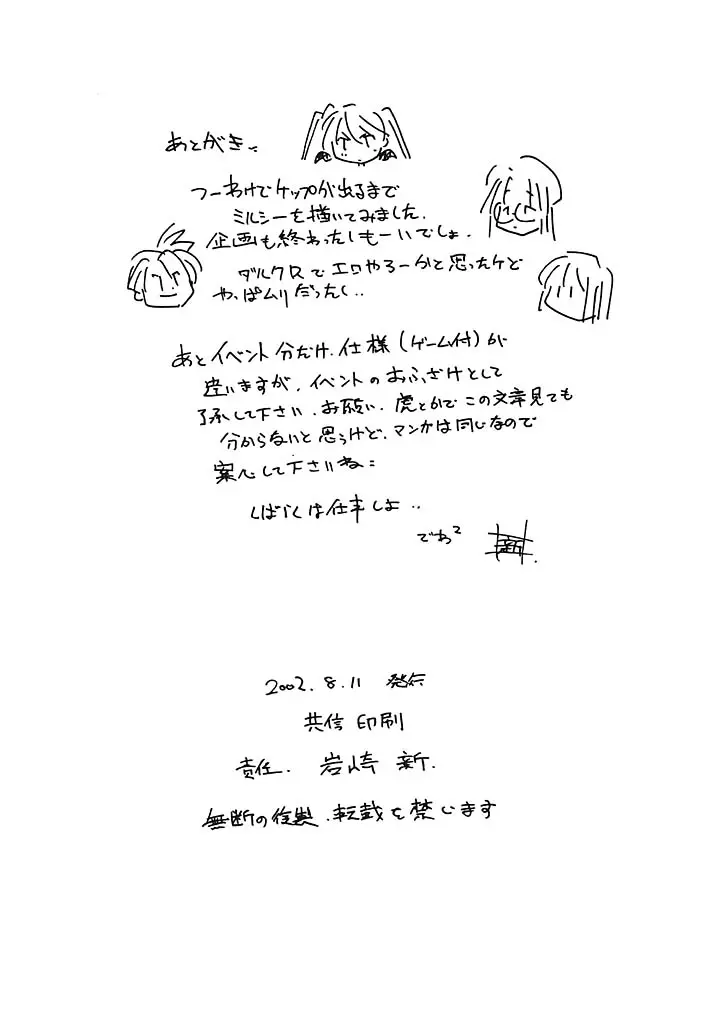 あとがき
つーわけでケップが出るまで
ミルシーを描いてみました.
企画も終わったしもーいでしょ.
ダルクロでエロやろーかと思ったケど
やっぱムリだったし..
あとイベント分だけ.仕様(ゲーム付)が
違いますが.イベントのおふざけとして
了承して下さい.お願い.虎とかでこの文章見ても
分からないと思うけど.マンガは同じなので
安心して下さいね
しばらくは仕事しよ..
でわ2
新
2002.8.11 発行
共信印刷
責任.岩崎 新.
無断の複製.転載を禁じます